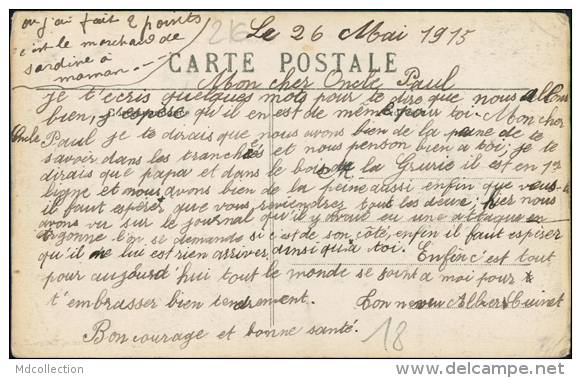 où j'ai fait 2 points
c'est le marchand de
sardine à
maman
Le 26 Mai 1915
CARTE POSTALE
Mon cher Oncle Paul
je t'écris quelques mots pour te dire que nous allons
bien, j'espère qu'il en est de même pour toi. Mon cher
Oncle Paul je te dirais que nous avons bien de la peine de te
savoir dans les tranchées et nous penson bien à toi; je te
dirais que papa et dans le bois de la Grurie il est en 1re
ligne et nous avons bien de la peine aussi enfin que veus-
il faut espérer que vous reviendrez tout les deux; hier nous
avons vu sur le journal qu'il y avait eu une attaque en
Argonne l'on se demande si c'est de son côté, enfin il faut espérer
qu'il ne lui est rien arriver ainsi qu'à toi. Enfin c'est tout
pour aujourd'hui tout le monde se joint a moi pour
t'embrasser bien tendrement. Ton neveu Albert
Bon courage et bonne santé.
18
Mdcollection
www.delcampe.net